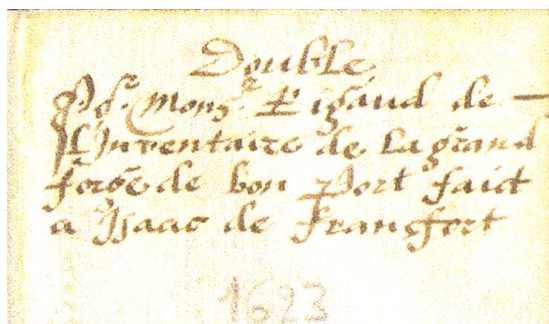 Double
Pr. Mons. Rigaud de
L'Inventaire de la grand
forge de bon Port faict
a Isaac de Francfort
1623